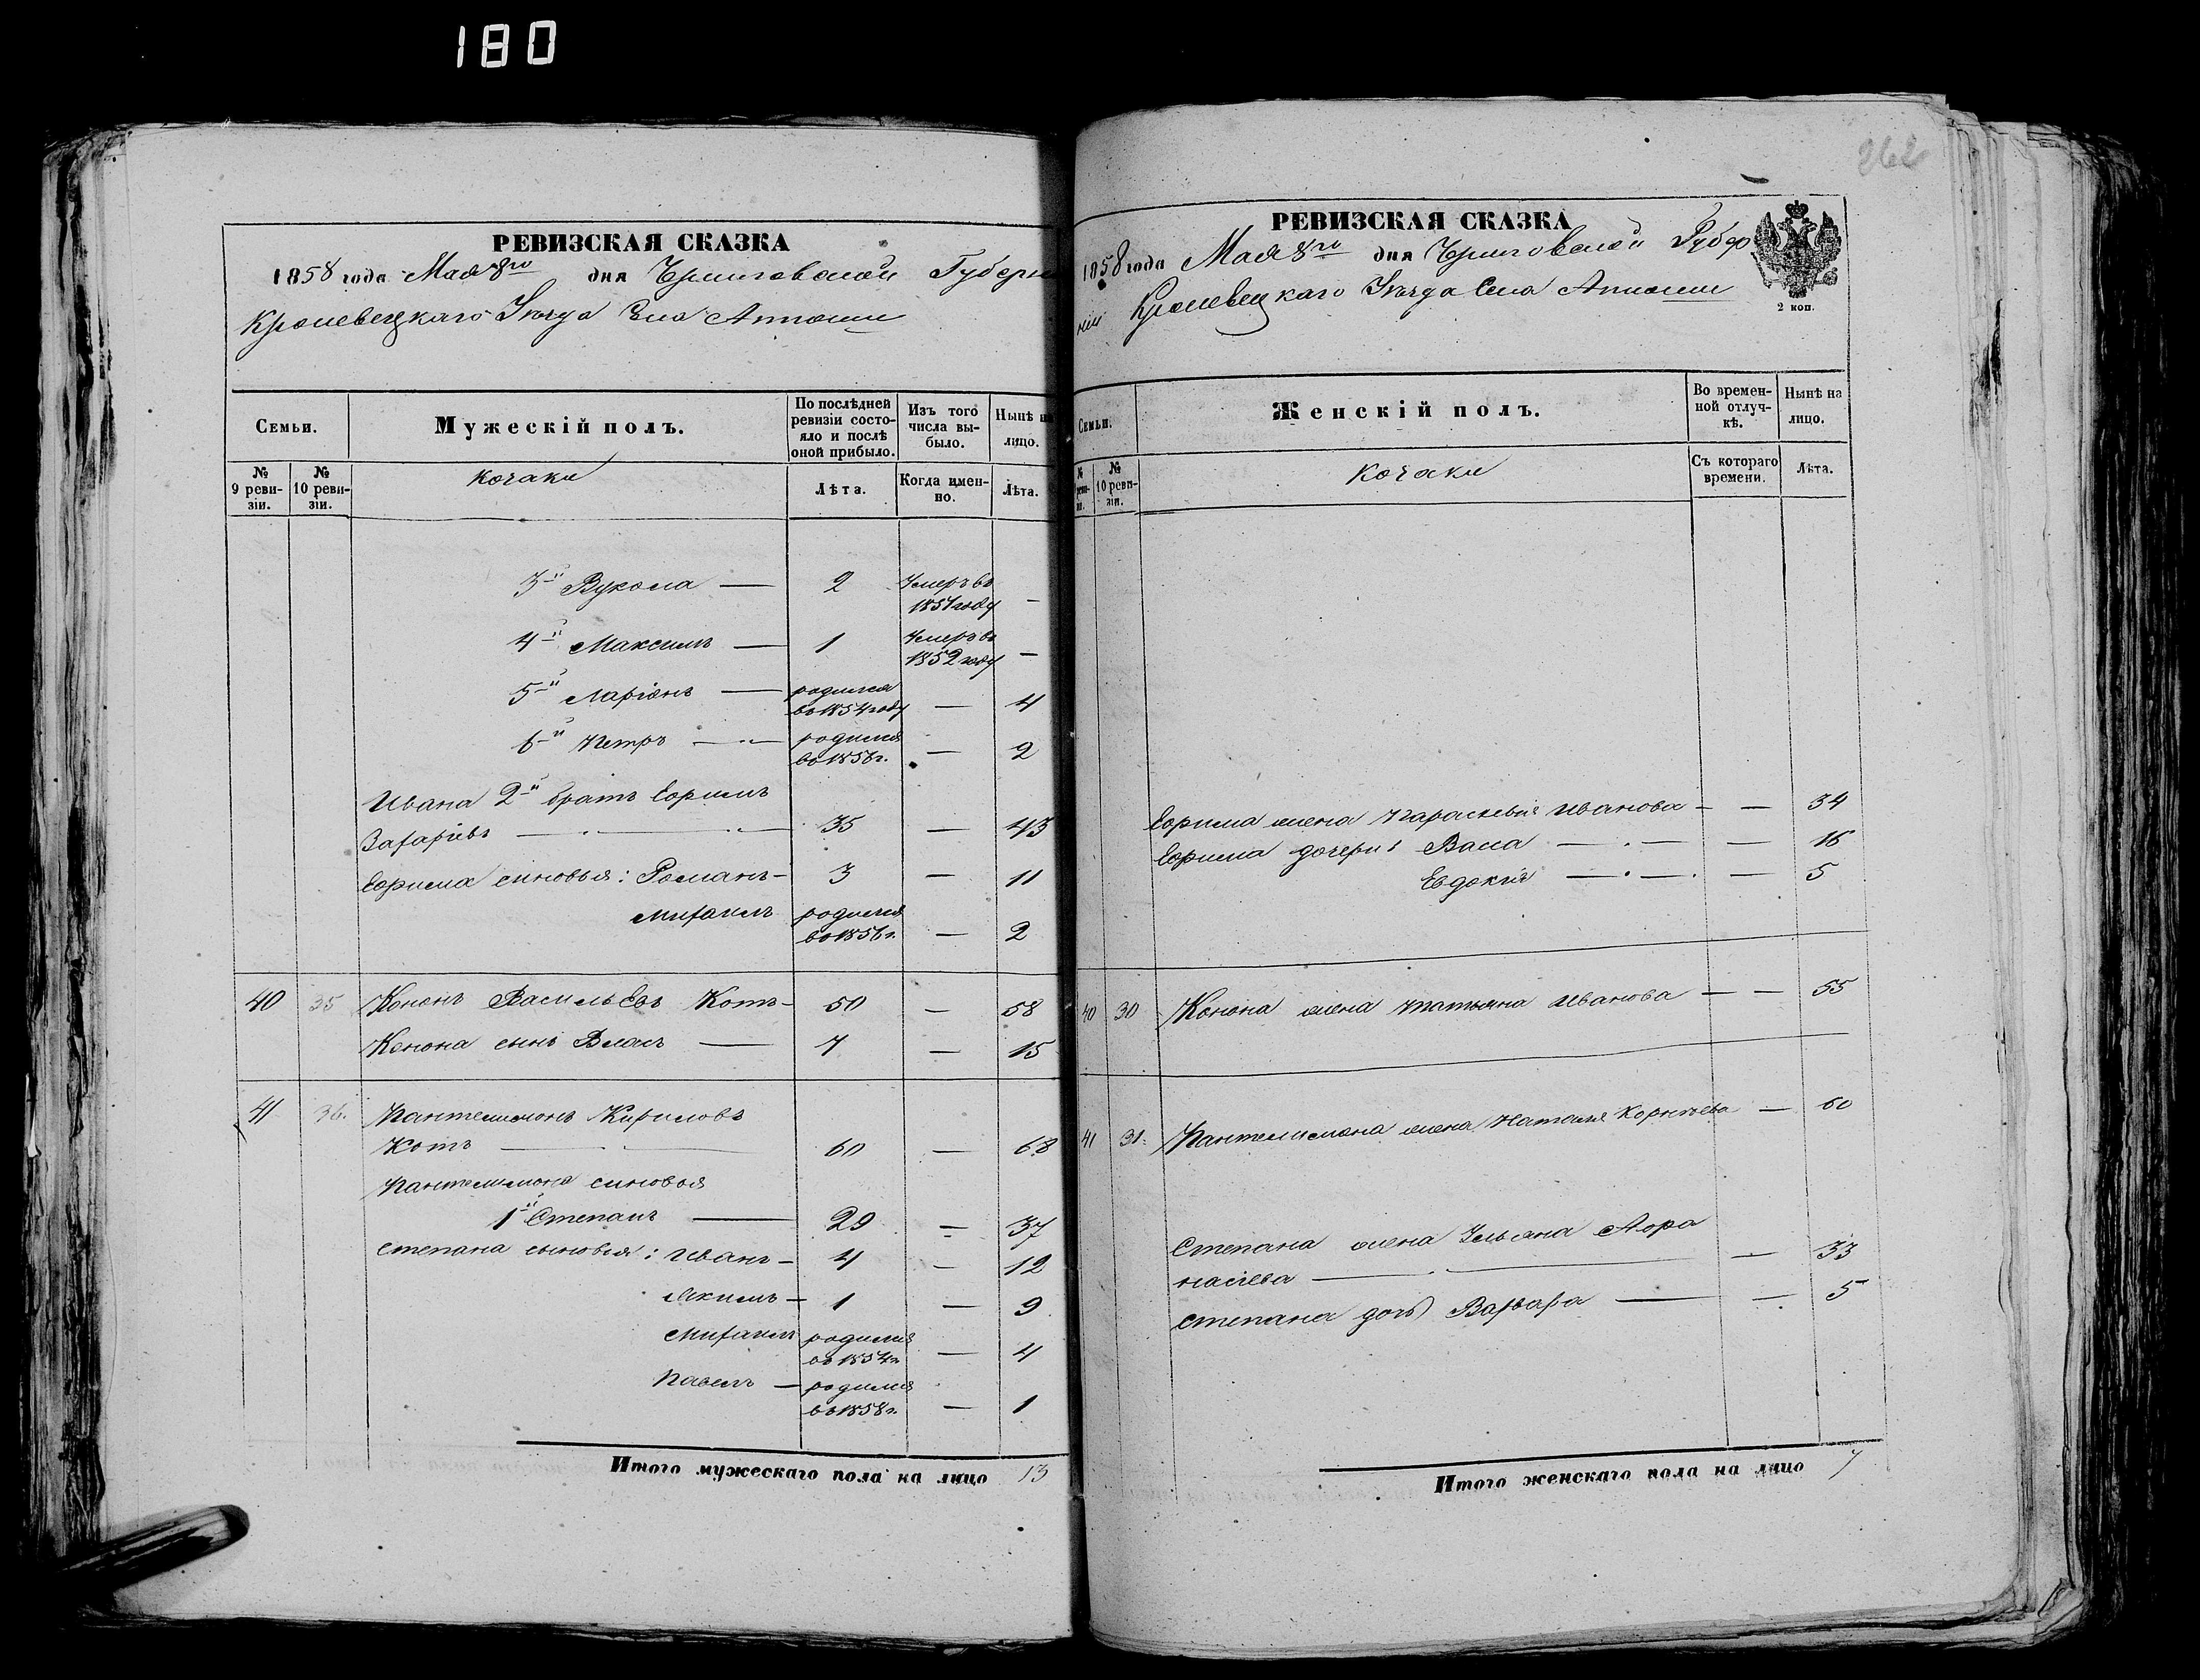 180
РЕВИЗСКАЯ СКАЗКА
1858 года Мая 8го дня Черниговской Губерн
Кролевецкаго Уѣзда Села
Семьи.
Мужескій полъ.
По послѣдней ревизіи состояло и послѣ оной прибыло.
Изъ того числа выбыло.
Нынѣ на лицо.
№ 9 ревизіи.
№ 10 ревизіи.
Козаки
Лѣта.
Когда именно.
Лѣта.
3й Вукола — 2 Умеръ въ 1851 году —
4й Максимъ — 1 Умеръ въ 1852 году —
5й Ларіонъ — родился въ 1854 году — 4
6й Петръ — родился въ 1856 г. — 2
Ивана 2й братъ Ефримъ
Захаріевъ — 35 — 43
Ефрима синовья: Романъ — 3 — 11
Михаилъ родился въ 1856 г. — 2
40 35 Кононъ Васильевъ Котъ — 50 — 58
Конона сынъ Власъ — 7 — 15
41 36. Пантелимонъ Кириловъ
Котъ — 60 — 68
Пантелимона синовья
1й Степанъ — 29 — 37
Степана сыновья: Иванъ — 4 — 12
Якимъ — 1 — 9
Михаилъ родился въ 1854 г. — 4
Павелъ — родился въ 1858 г. — 1
Итого мужескаго пола на лицо 13
262
РЕВИЗСКАЯ СКАЗКА
1858 года Мая 8го дня Черниговской Губер
ніи Кролевецкаго Уѣзда Села
2 коп.
Семьи.
Женскій полъ.
Во временной отлучкѣ.
Нынѣ на лицо.
№ 10 ревизіи.
Козаки
Съ котораго времени.
Лѣта.
Ефрима жена Параскевія Иванова — — 34
Ефрима дочери: Васса — — 16
Евдокія — — 5
40 30 Конона жена Татьяна Иванова — — 55
41 31. Пантелимона жена Наталія Корнѣева — 60
Степана жена Ульяна Афо
насіева — — 33
Степана дочь Варвара — — 5
Итого женскаго пола на лицо 7